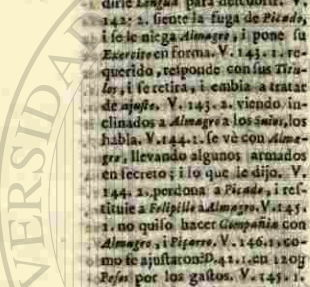 dirle Lengua para descubrir. V.
142. 2. siente la fuga de Picado,
i se le niega Almagro, i pone su
Exercito en forma. V. 143. 1. re-
querido, responde con sus Titu-
los, i se retira, i embia a tratar
de ajuste. V. 143. 2. viendo in-
clinados a Almagro a los suios, los
habla. V. 144. 1. se vè con Alma-
gro, llevando algunos armados
en secreto; i lo que le dijo. V.
144. 2. perdona a Picado, i res-
tituie a Felipillo a Almagro. V. 145.
1. no quiso hacer Compañia con
Almagro, i Piçarro. V. 146. 1. co-
mo se ajustaron. D. 42. 1. en 120y
Pesos por los gastos. V. 145. 1.
ERSIDA